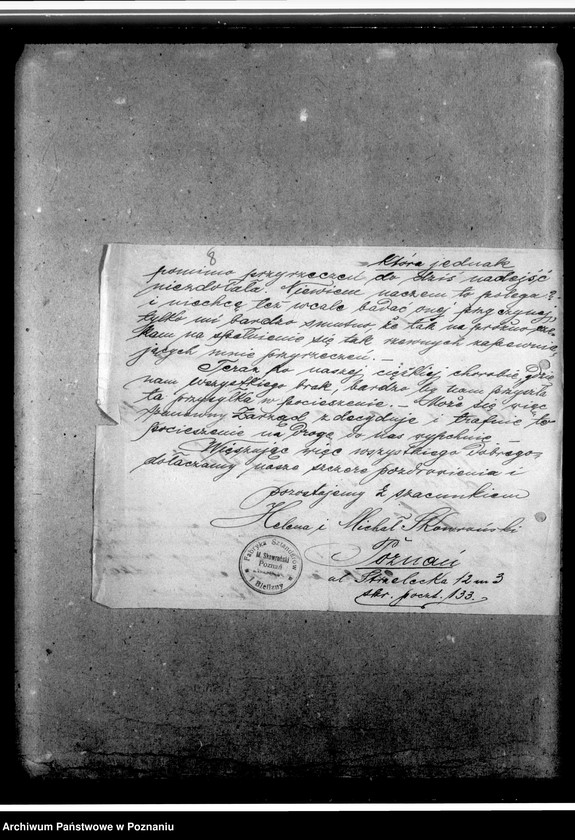 8
która jednak
pomimo przyrzeczeń do dziś nadejść
niezdołała. Niewiem naczem to polega?
i niechcę też wcale badać onej przyczyny,
tylko mi bardzo smutno, że tak na próżno cze-
kam na spełnienie się tak rzewnych zapewnia-
jących mnie przyrzeczeń. –
Teraz po naszej ciężkiej chorobie, gdzie
nam wszystkiego brak, bardzo by nam przyszła
ta przesyłka w pocieszenie. – Może się więc
Szanowny Zarząd zdecyduje i trafnie to
pocieszenie na drogę do nas wypchnie. –
Wieszając więc wszystkiego dobrego,
dołączamy nasze szczere pozdrowienia i
pozostajemy z szacunkiem
Helena i Michał Skawroński
Poznań
ul Strzelecka 12 m 3
skr. poczt. 133.
Fabryka Sztandarów
M. Skawroński
Poznań
i Bielizny
Archiwum Państwowe w Poznaniu